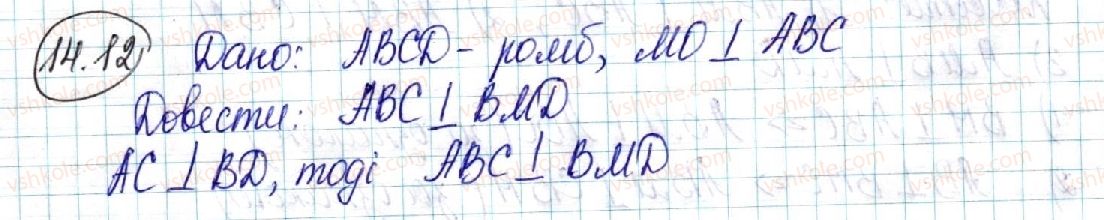 14.12 Дано: ABCD - ромб, MO ⊥ ABC
Довести: ABC ⊥ BMD
AC ⊥ BD, тоді ABC ⊥ BMD